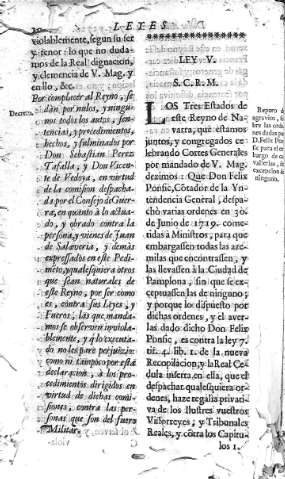 LEYES
violablemente, segun su ser
y tenor: lo que no duda-
mos de la Real dignacion,
y clemencia de V. Mag. y
en ello, &c.
Decreto.
Por complacer al Reyno, se
dàn, por nulos, y ningu-
nos todos los autos, sen-
tencias, y procedimientos,
hechos, y fulminados por
Don Sebastian Perez
Tafalla, y Don Vicen-
te de Vedoya, en virtud
de la comision despacha-
da por el Consejo de Guer-
ra, en quanto à lo actua-
do, y obrado contra la
persona, y vienes de Juan
de Salaveria, y demàs
expressados en este Pedi-
mento, y qualesquiera otros
que sean naturales de
este Reyno, por ser como
es, contra sus Leyes, y
Fueros, las que manda-
mos se observen inviola-
blemente, y q̃ lo executa-
do no les pare perjuizio:
como ni tampoco por esta
declaracion, à los pro-
cedimientos dirigidos en
virtud de dichas comi-
siones, contra las per-
sonas que son del fuero
Militar.
LEY V.
S. C. R. M.
LOS Tres Estados de
este Reyno de Na-
varra, que estamos
juntos, y congregados ce-
lebrando Cortes Generales
por mandado de V. Mag.
dezimos: Que Don Felix
Ponsic, Cõtador de la Yn-
tendencia General, despa-
chò varias ordenes en 30.
de Junio de 1719. come-
tidas à Ministros, para que
embargassen todas las aze-
milas que encontrassen, y
las llevassen à la Ciudad de
Pamplona, sin que se ex-
ceptuassen las de ninguno;
y porque lo dispuesto por
dichas ordenes, y el aver-
las dado dicho Don Felix
Ponsic, es contra la ley 7.
tit. 4. lib. 1. de la nueva
Recopilacion, y la Real Ce-
dula inserta en ella, que el
despachar qualesquiera or-
denes, haze regalia privati-
va de los Ilustres vuestros
Visorreyes, y Tribunales
Reales, y contra los Capitu-
los 1.
Reparo de
agravio, so-
bre las orde-
nes dadas por
D. Felix Pon-
sic para el em-
bargo de az-